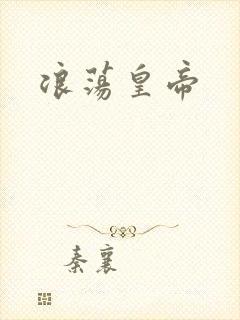 浪荡皇帝
秦襄